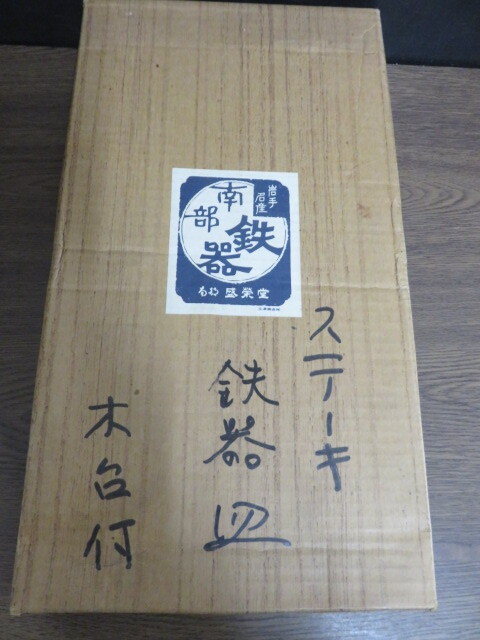 岩手
名産
南部
鉄器
盛栄堂
ステーキ
鉄器皿
木台付